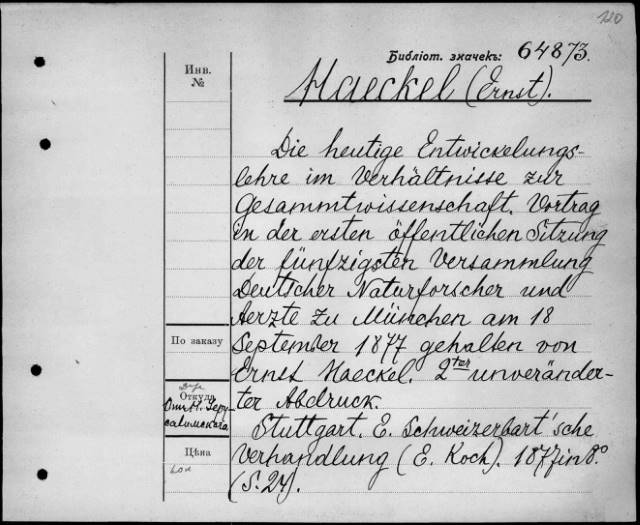 210
Библіот. значекъ: 64873.
Инв.
№
Haeckel (Ernst).
Die heutige Entwickelungs-
lehre im Verhältnisse zur
Gesammtwissenschaft. Vortrag
in der ersten öffentlichen Sitzung
der fünfzigsten Versammlung
Deutscher Naturforscher und
Aerzte zu München am 18
September 1877 gehalten von
Ernst Haeckel. 2ter unveränder-
ter Abdruck.
Stuttgart. E. Schweizerbart'sche
Verhandlung (E. Koch). 1877 in 8.°
(S. 24).
По заказу
Откуда
Цѣна
коп